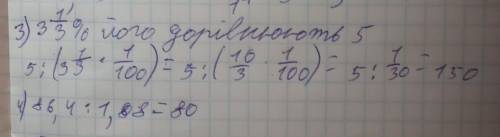 3) 3 1/3 % його дорівнюють 5
5 : (3 1/3 · 1/100) = 5 : (10/3 · 1/100) = 5 : 1/30 = 150
4) 86,4 : 1,08 = 80